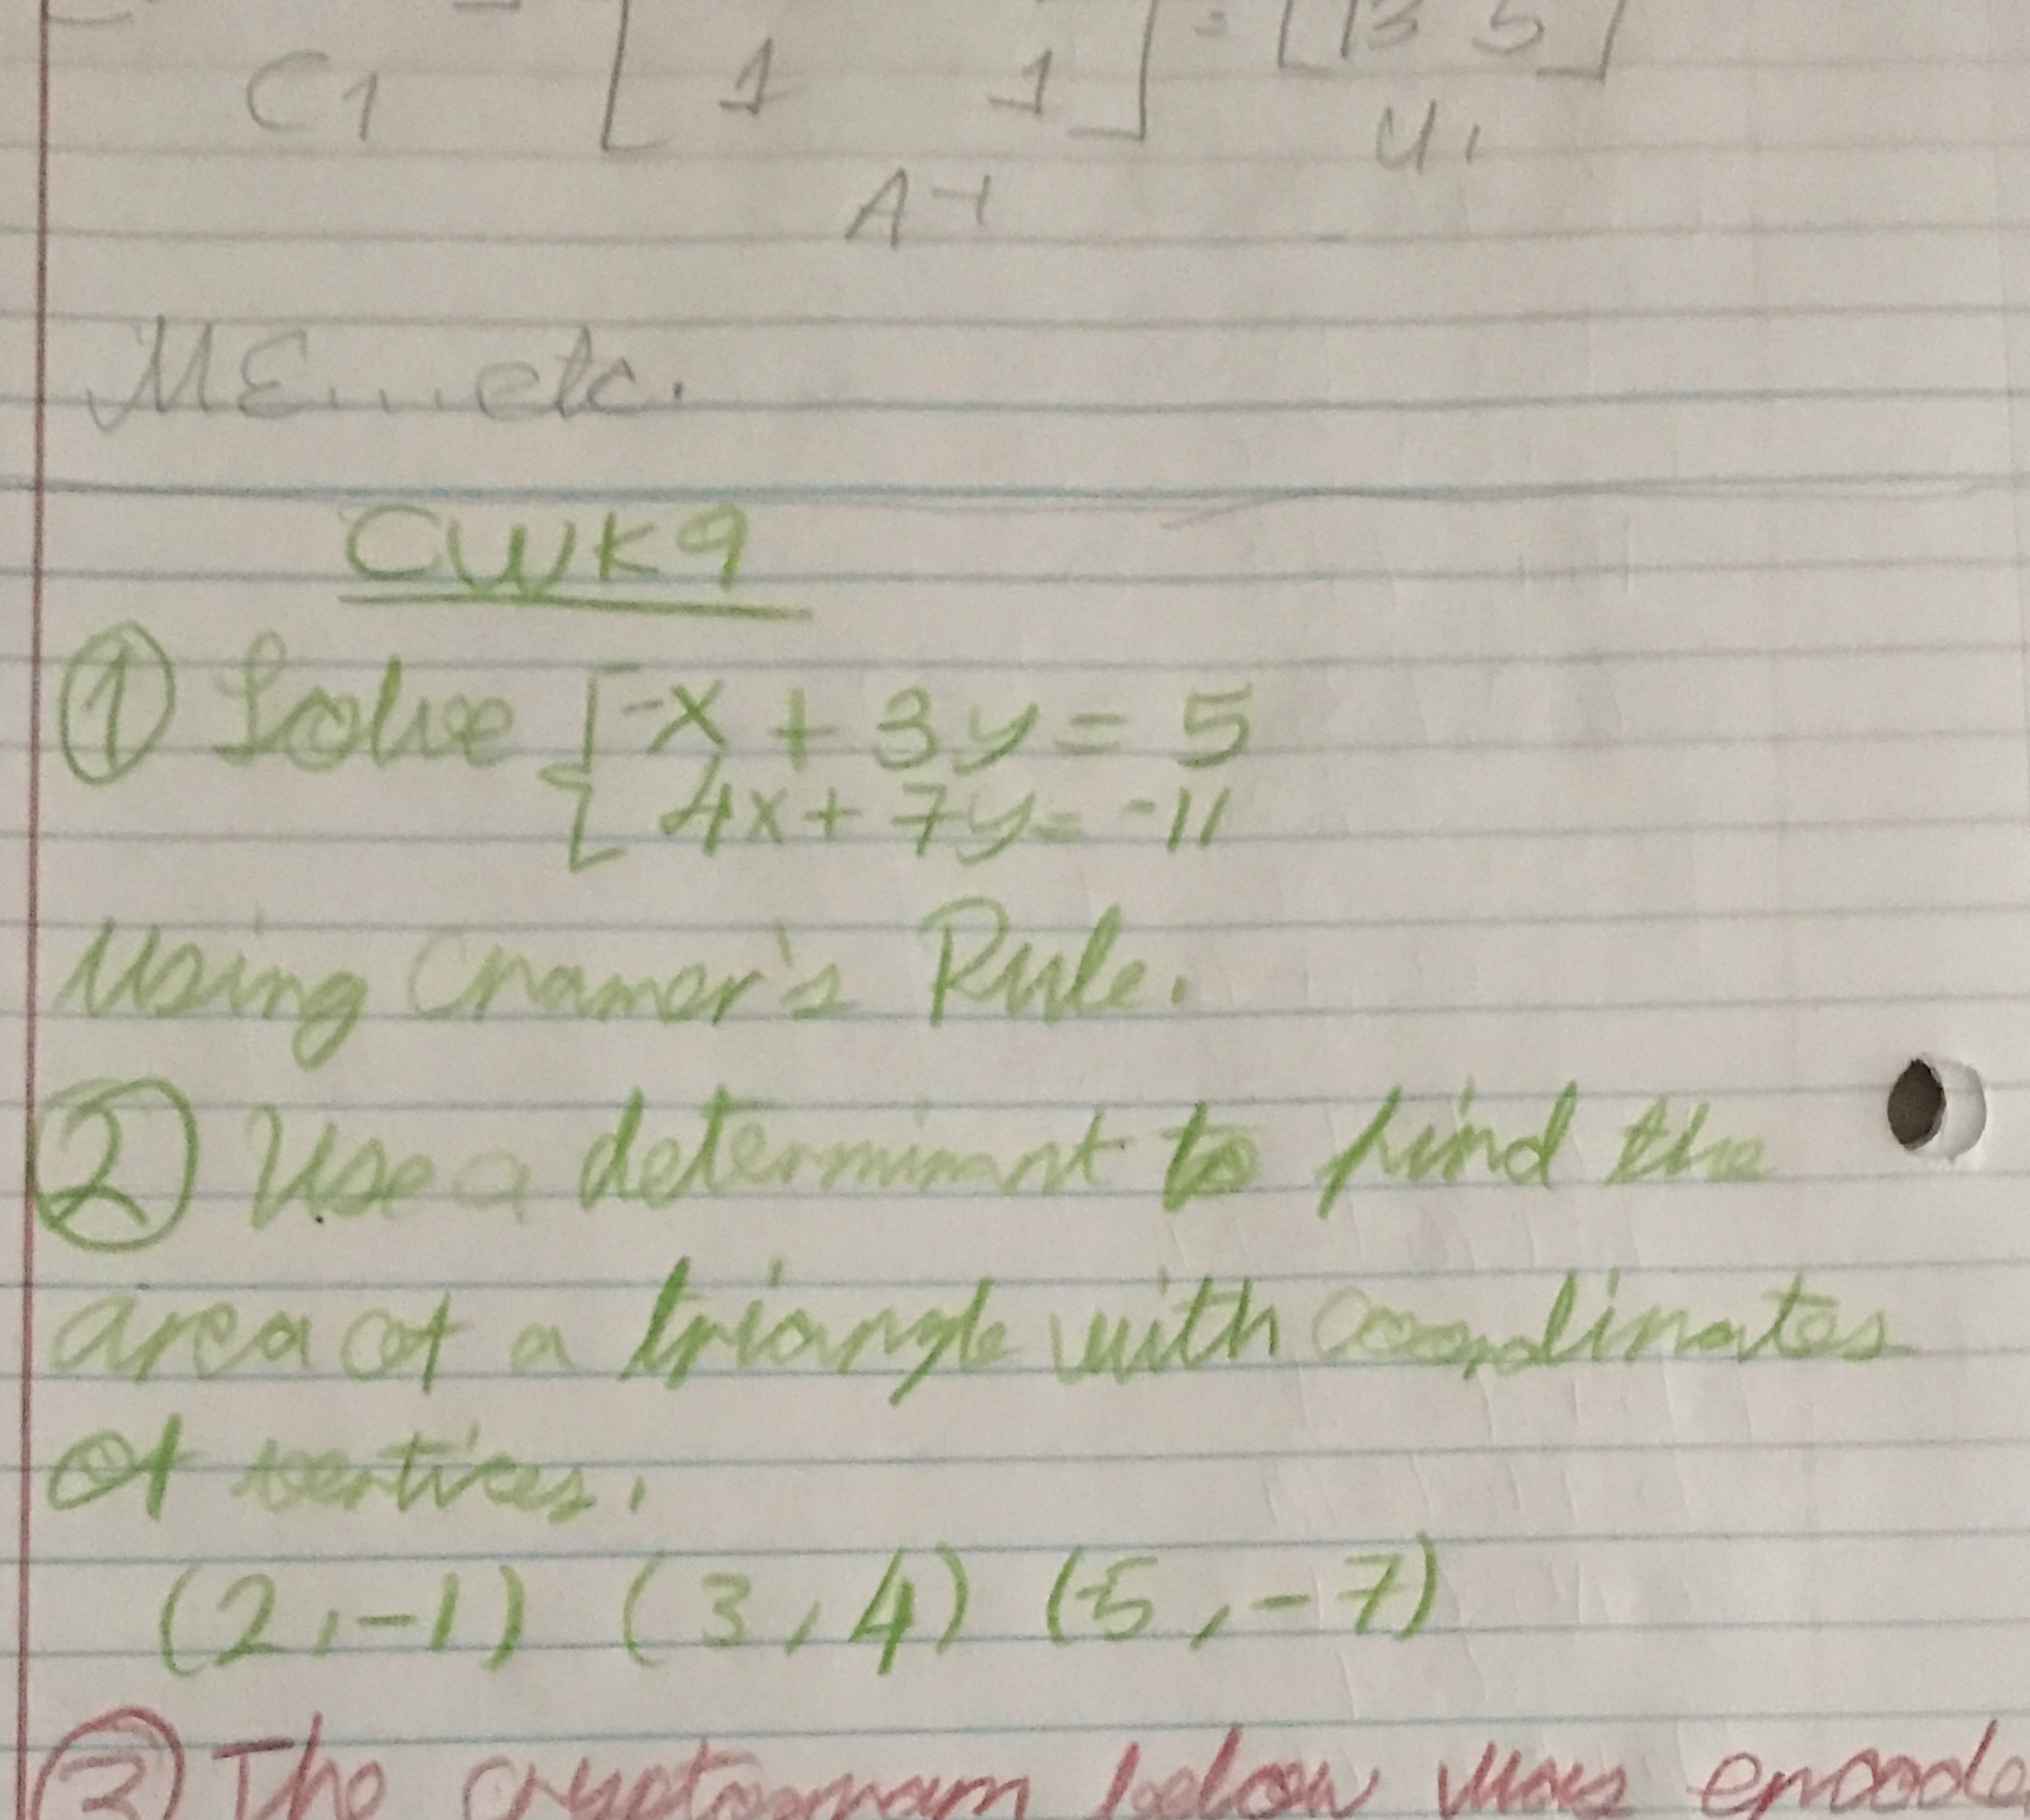 C1 [ 1 1 ] = [13 5]
A-1
ME....etc.
CWK9
① Solve { -x + 3y = 5
4x + 7y = -11
Using Cramer's Rule.
② Use a determinant to find the
area of a triangle with coordinates
of vertices.
(2,-1) (3,4) (5,-7)
③ The cryptogram below was encode